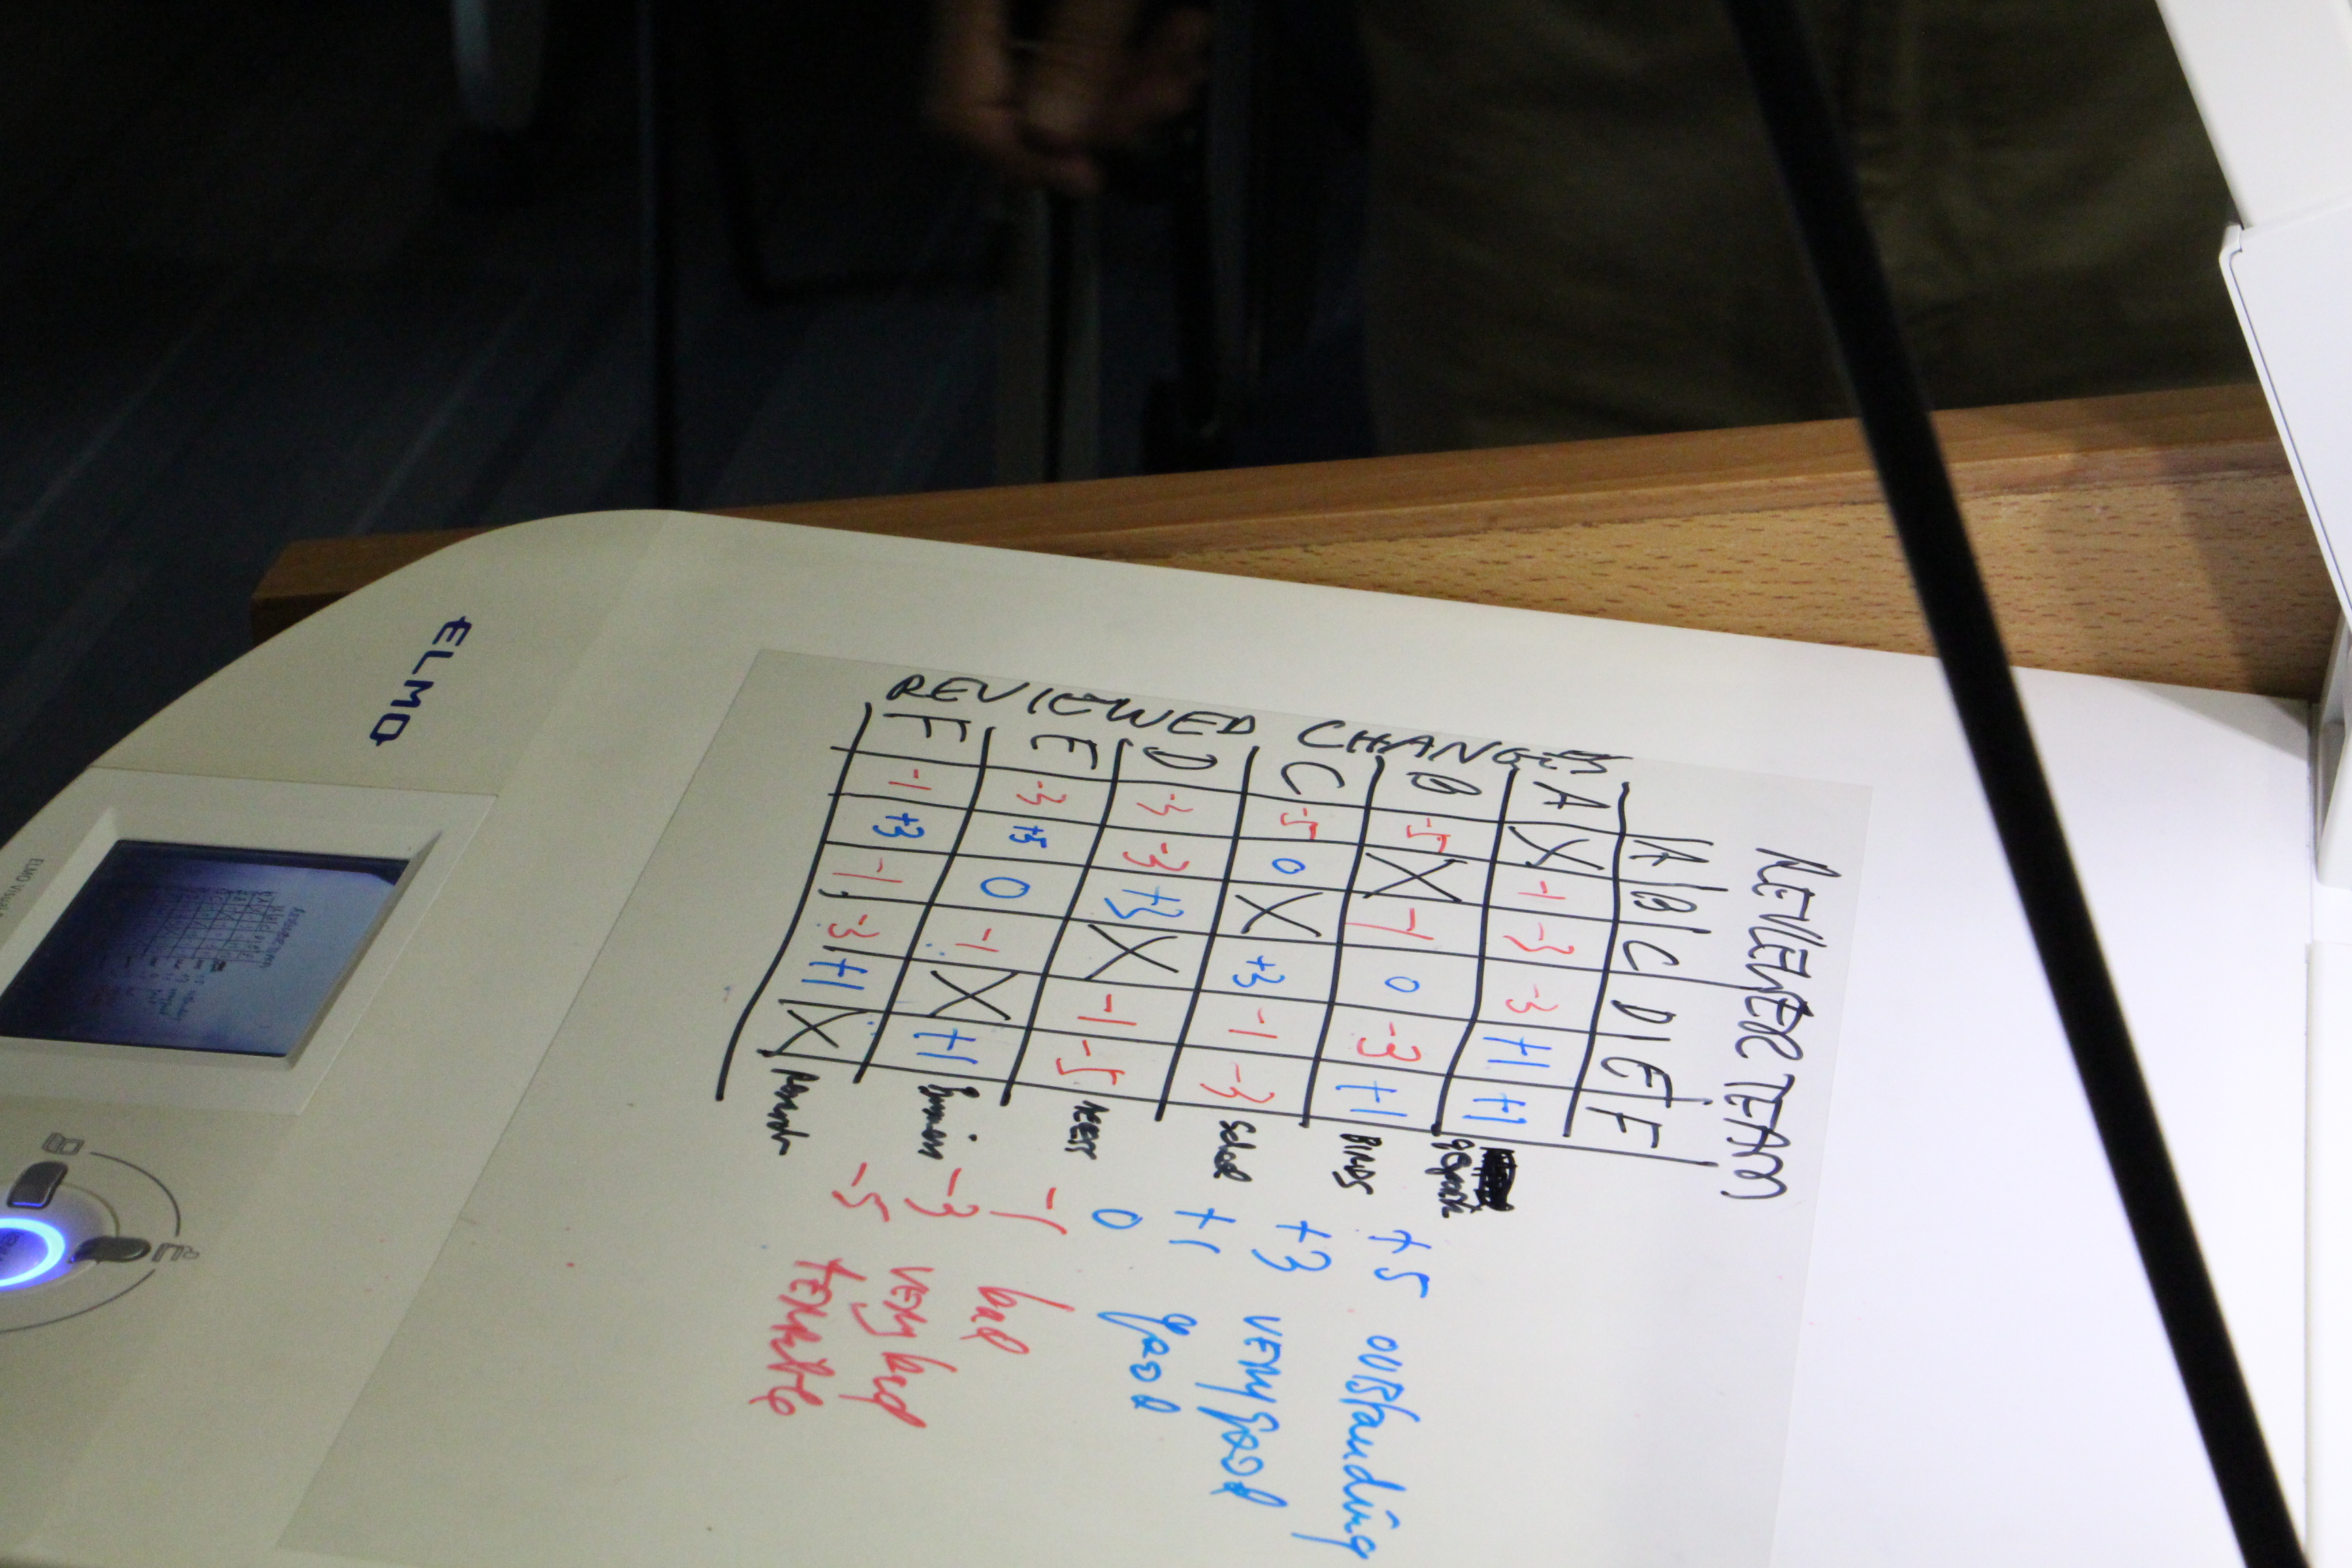 REVIEWER TEAM
A B C D E F
REVIEWED CHANGES
A X -1 -3 -3 +1 +1
B -5 X -1 0 -3 +1
C -5 0 X +3 -1 -3
D -3 -3 +3 X -1 -5
E -3 +5 0 -1 X +1
F -1 +3 -1 -3 +1 X
+5 outstanding
+3 very good
+1 good
0
-1 bad
-3 very bad
-5 terrible
ELMO
ELMO Visual